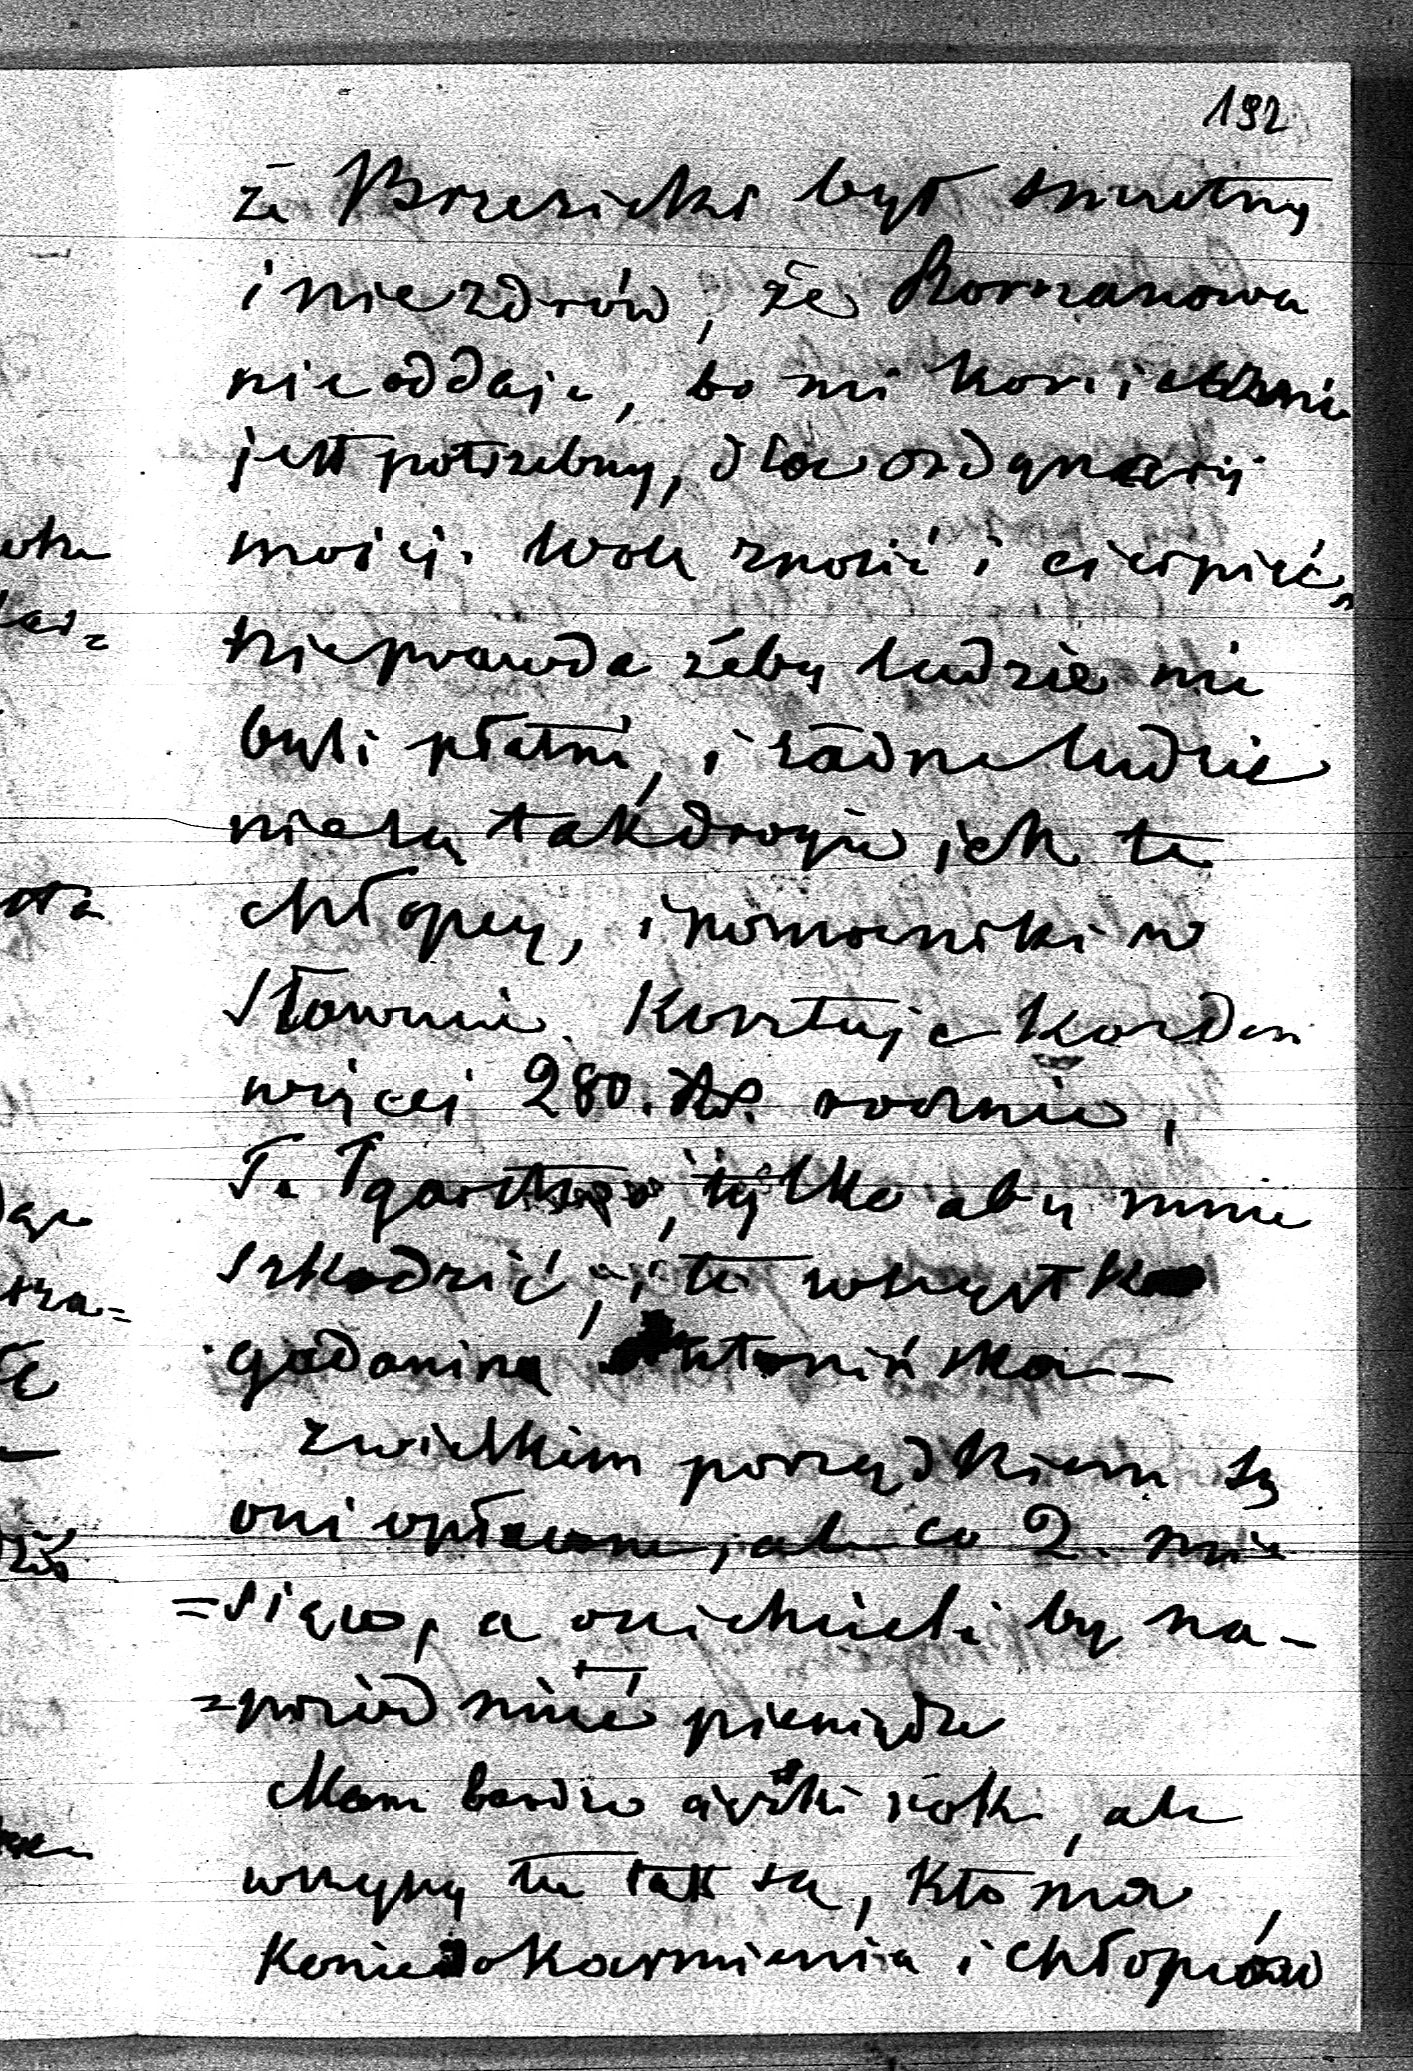 192
że Brzezicki był smutny
i niezdrów, że Borzanowa
nie oddaje, bo mi koniecznie
jest potrzebny, dla ordynaryi
mojej. Wolę znosić i cierpieć,
Nieprawda żeby ludzie nie
byli płatni, i żadne ludzie
nie są tak drogie jak te
chłopcy, i pomocniki w
Sławucie. Kosztuje każden
więcej 280. rocznie,
Te tylko aby mnie
szkodzić, i te wszystko
gadanina
z wielkim porządkiem są
oni opłacone, ale co 2. mie
=siące, a oni chcieli by na-
=przód mieć pieniądze
Mam bardzo ciężki rok, ale
wszyscy tu tak są, kto ma
konie do karmienia i chłopców